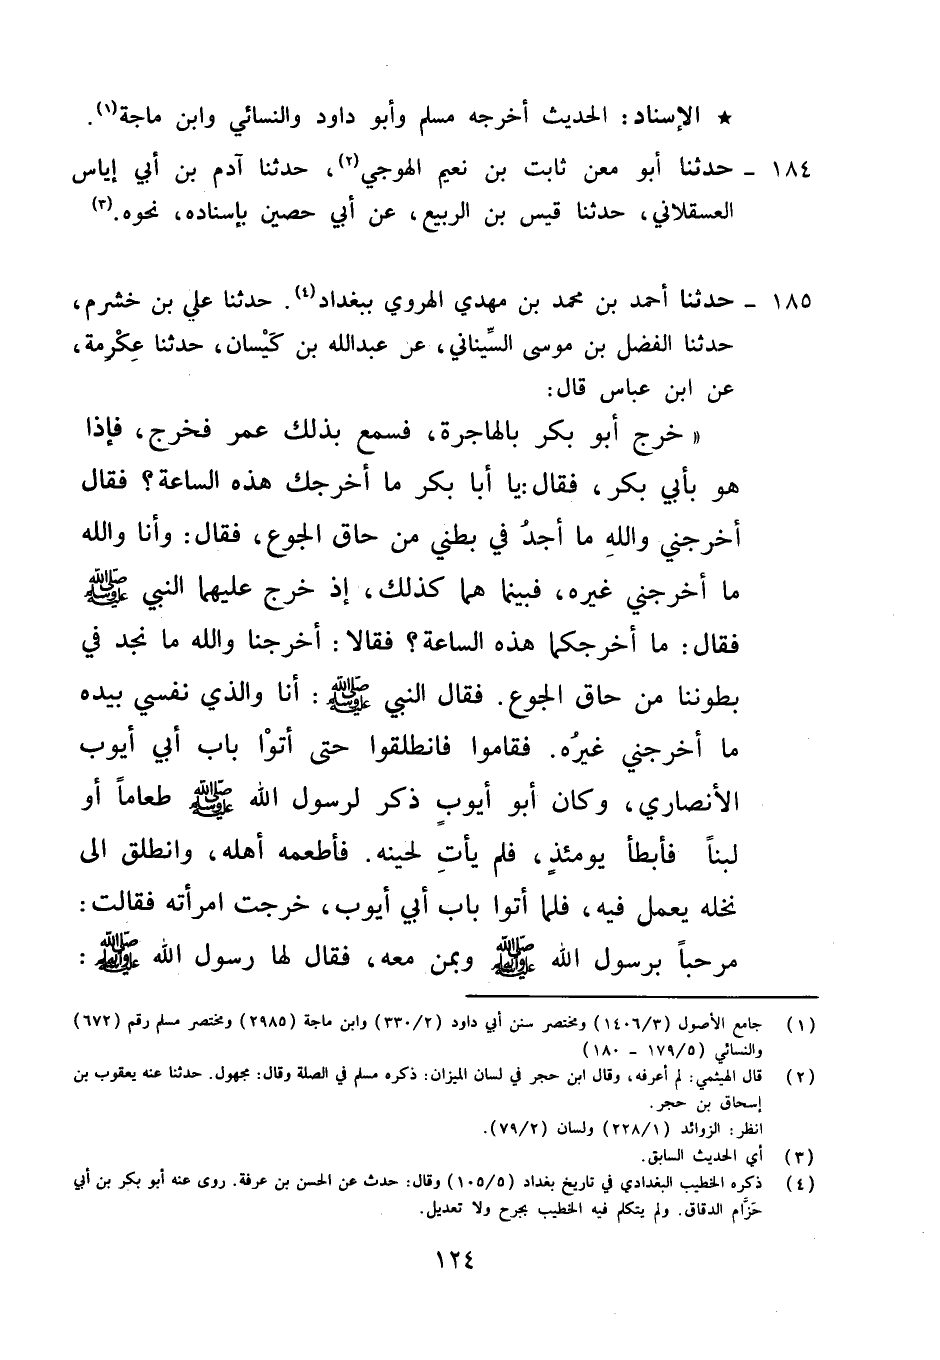 ★ الإسناد: الحديث أخرجه مسلم وأبو داود والنسائي وابن ماجة(١).
١٨٤ ـ حدثنا أبو معن ثابت بن نعيم الهوجي(٢)، حدثنا آدم بن أبي إياس
العسقلاني، حدثنا قيس بن الربيع، عن أبي حصين بإسناده، نحوه.(٣)
١٨٥ ـ حدثنا أحمد بن محمد بن مهدي الهروي ببغداد(٤). حدثنا علي بن خشرم،
حدثنا الفضل بن موسى السِّيناني، عن عبدالله بن كَيْسان، حدثنا عِكْرِمة،
عن ابن عباس قال:
« خرج أبو بكر بالهاجرة، فسمع بذلك عمر فخرج، فإذا
هو بأبي بكر، فقال:يا أبا بكر ما أخرجك هذه الساعة؟ فقال
أخرجني واللهِ ما أجدُ في بطني من حاق الجوع، فقال: وأنا والله
ما أخرجني غيره، فبينما هما كذلك، إذ خرج عليهما النبي ﷺ
فقال: ما أخرجكما هذه الساعة؟ فقالا: أخرجنا والله ما نجد في
بطوننا من حاق الجوع. فقال النبي ﷺ: أنا والذي نفسي بيده
ما أخرجني غيرُه. فقاموا فانطلقوا حتى أتوْا باب أبي أيوب
الأنصاري، وكان أبو أيوبٍ ذكر لرسول الله ﷺ طعاماً أو
لبناً فأبطأ يومئذٍ، فلم يأتِ لحينه. فأطعمه أهله، وانطلق الى
نخله يعمل فيه، فلما أتوا باب أبي أيوب، خرجت امرأته فقالت:
مرحباً برسول الله ﷺ وبمن معه، فقال لها رسول الله ﷺ:
(١) جامع الأصول (١٤٠٦/٣) ومختصر سنن أبي داود (٣٣٠/٢) وابن ماجة (٢٩٨٥) ومختصر مسلم رقم (٦٧٢)
والنسائي (١٧٩/٥ ـ ١٨٠)
(٢) قال الهيثمي: لم أعرفه، وقال ابن حجر في لسان الميزان: ذكره مسلم في الصلة وقال: مجهول. حدثنا عنه يعقوب بن
إسحاق بن حجر.
انظر: الزوائد (٢٢٨/١) ولسان (٧٩/٢).
(٣) أي الحديث السابق.
(٤) ذكره الخطيب البغدادي في تاريخ بغداد (١٠٥/٥) وقال: حدث عن الحسن بن عرفة. روى عنه أبو بكر بن أبي
حَزَّام الدقاق. ولم يتكلم فيه الخطيب بجرح ولا تعديل.
١٢٤